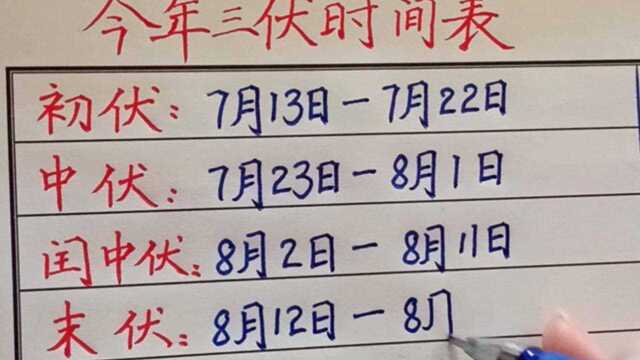 今年三伏时间表
初伏：7月13日－7月22日
中伏：7月23日－8月1日
闰中伏：8月2日－8月11日
末伏：8月12日－8